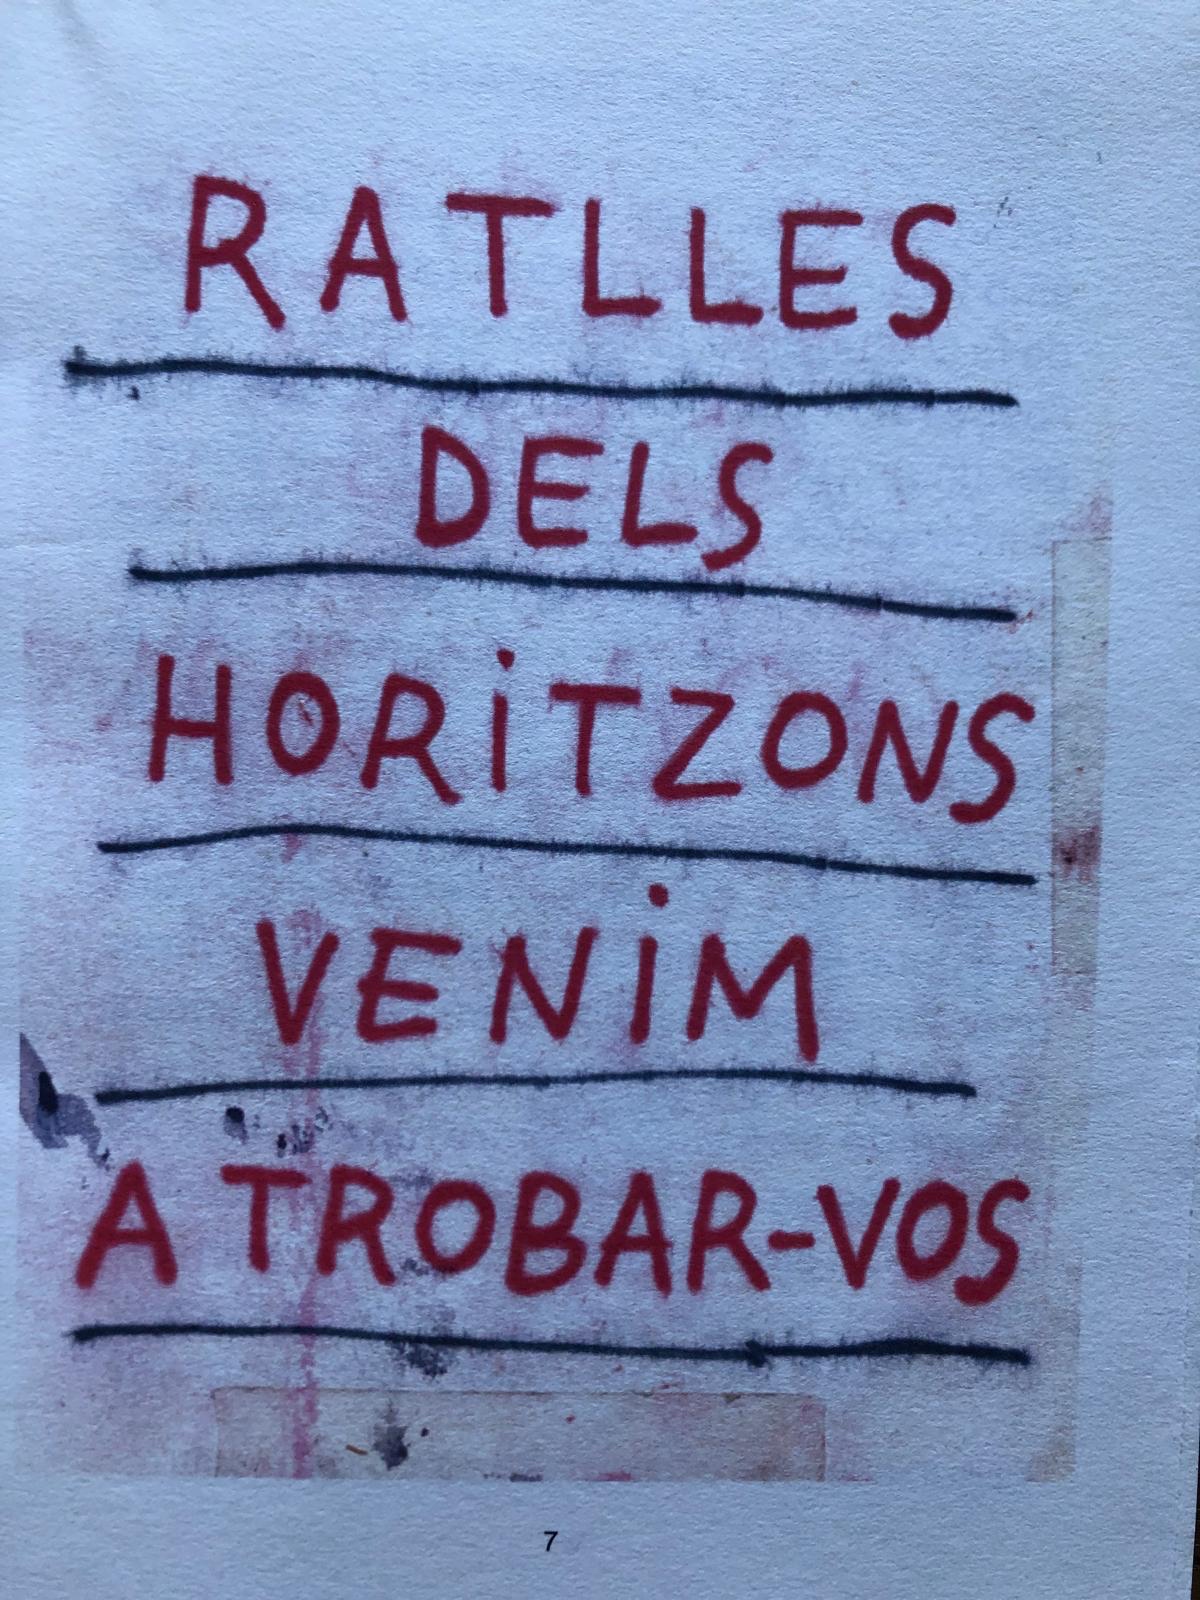 RATLLES
DELS
HORiTZONS
VENiM
A TROBAR-VOS
7